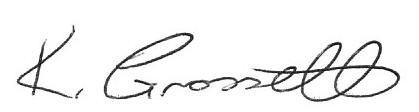 K. Grossetti